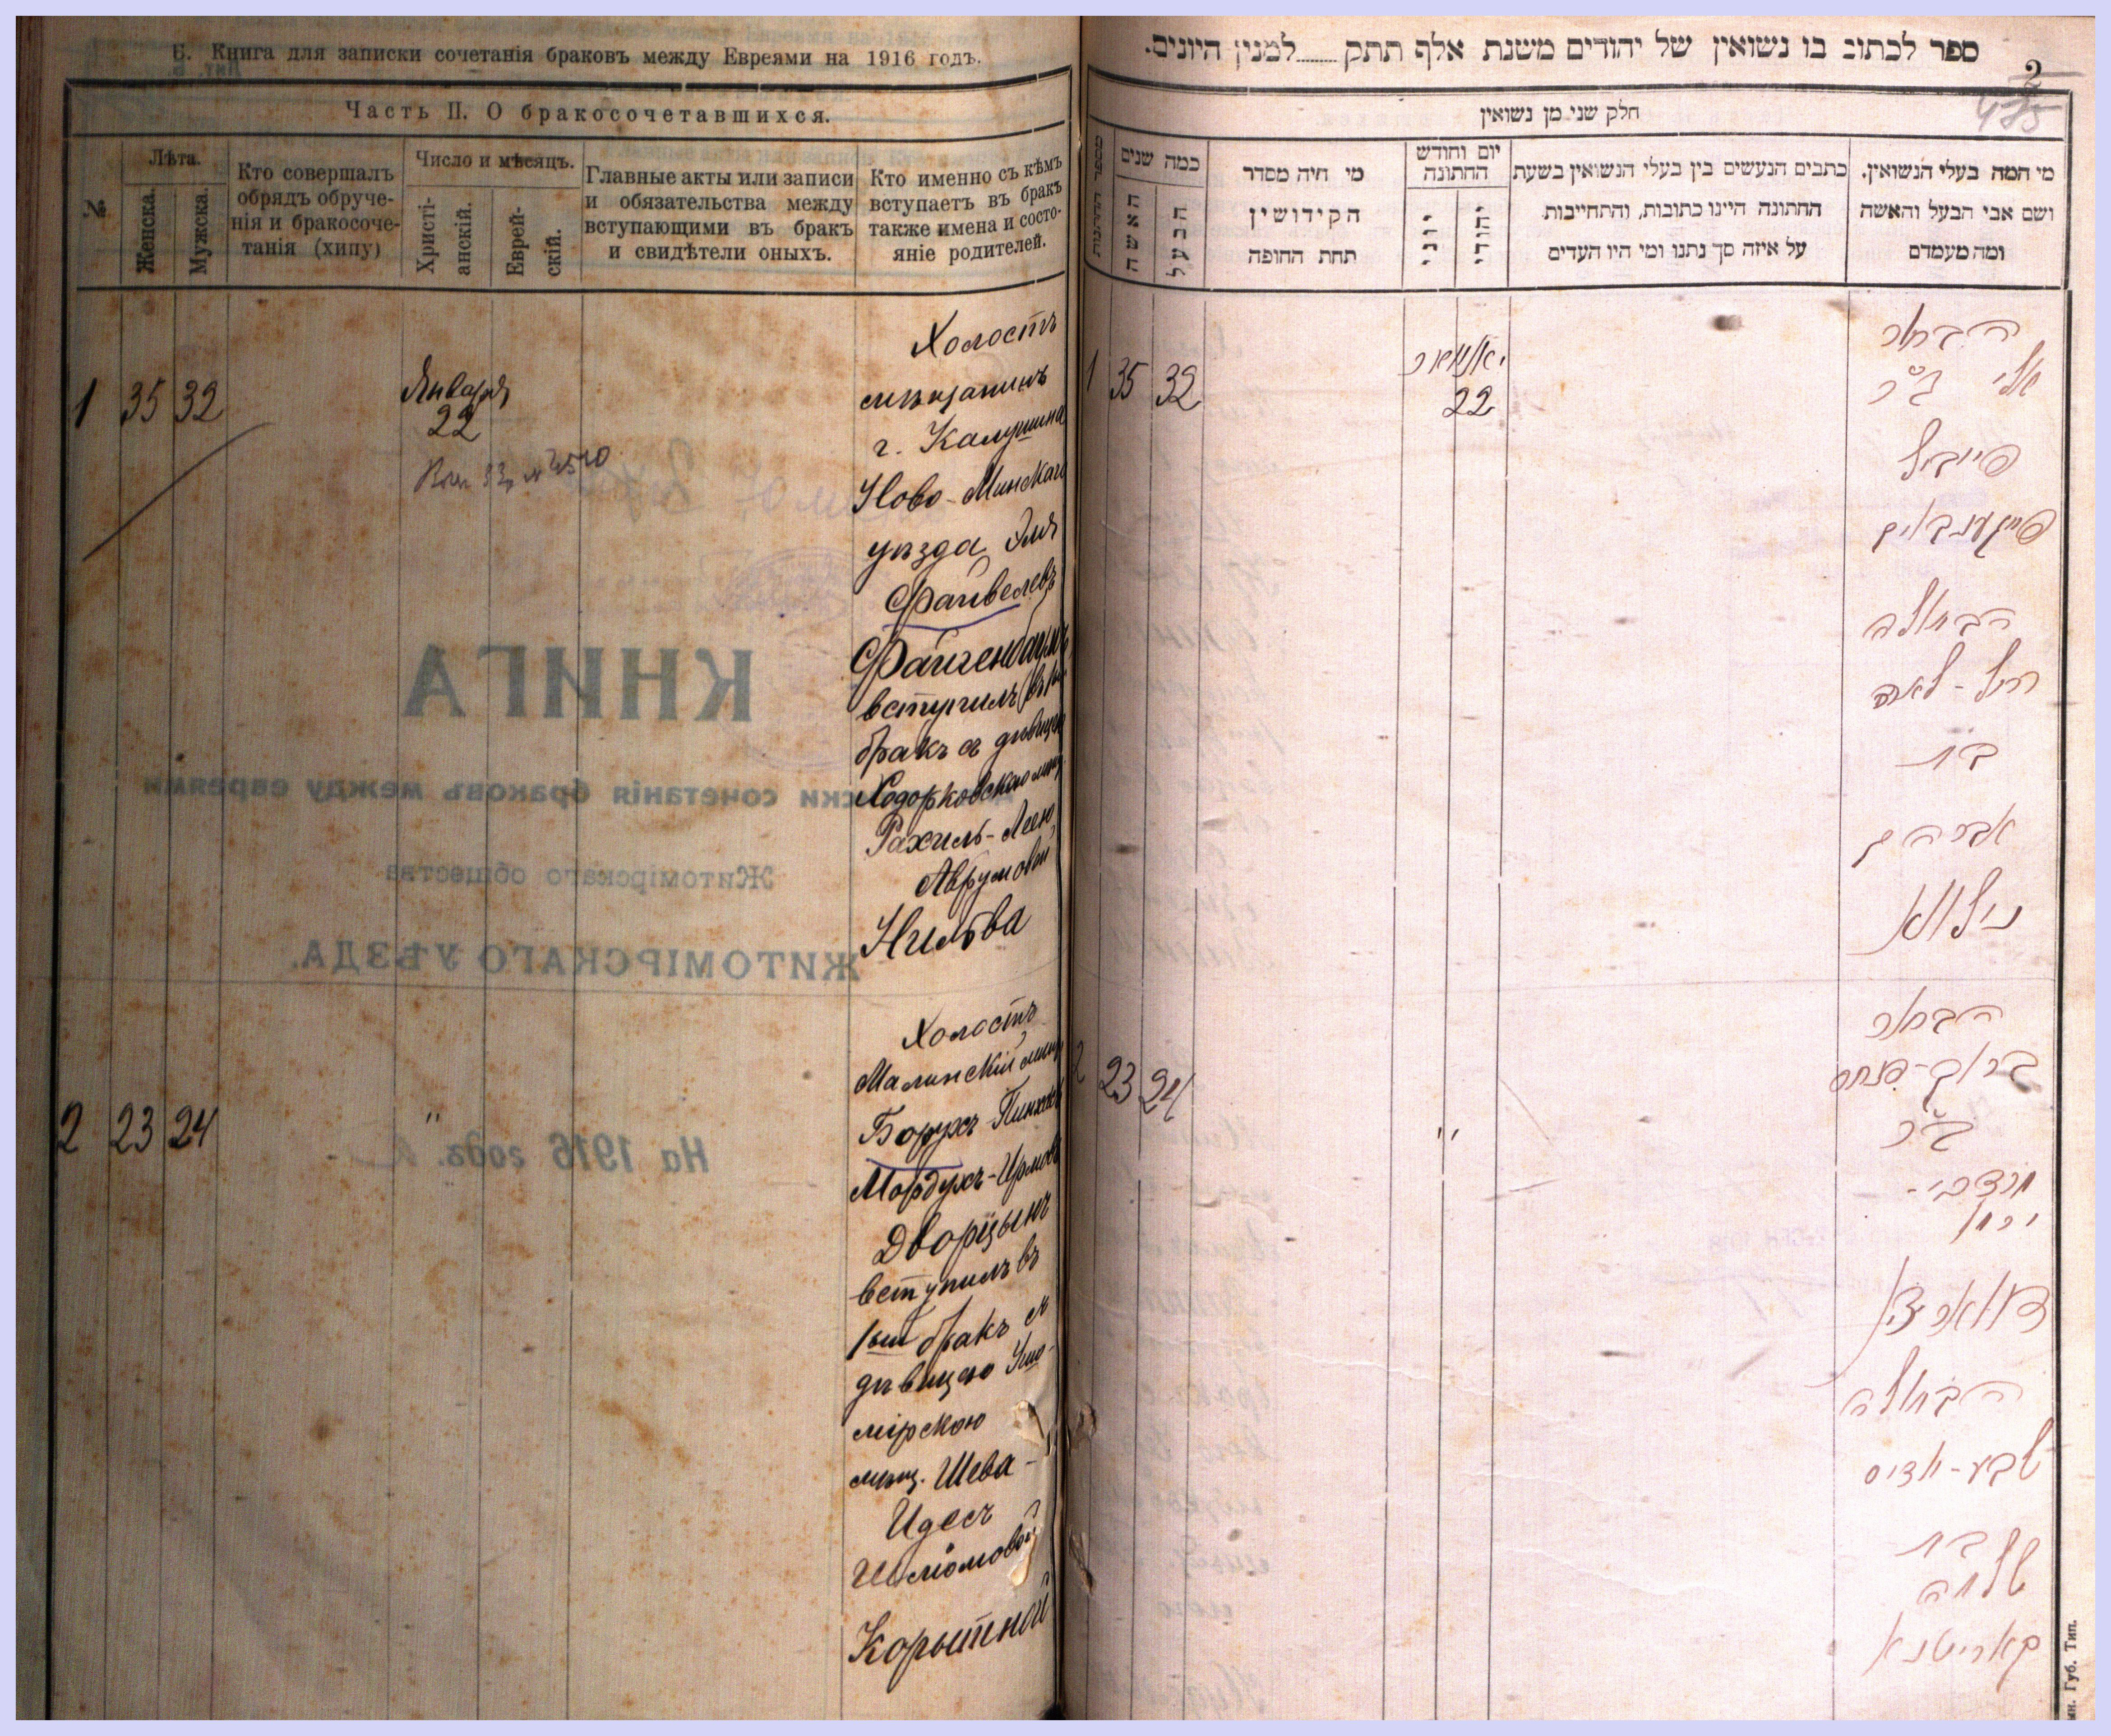 Б. Книга для записки сочетанія браковъ между Евреями на 1916 годъ.
Часть II. О бракосочетавшихся.
№
Лѣта.
Женска.
Мужска.
Кто совершалъ
обрядъ обруче-
нія и бракосоче-
танія (хипу)
Число и мѣсяцъ.
Христі-
анскій.
Еврей-
скій.
Главные акты или записи
и обязательства между
вступающими въ бракъ
и свидѣтели оныхъ.
Кто именно съ кѣмъ
вступаетъ въ бракъ
также имена и состо-
яніе родителей.
1 35 32
Января
22
Холостъ
мѣщанинъ
г. Калушина
Ново-Минскаго
уѣзда Эля
Файвелевъ
Файгенбаумъ
вступилъ
бракъ съ дѣвицею
Ходорковскою
Рахиль-Леею
Аврумовой
Нильва
2 23 24
"
Холостъ
Малинскій
Борухъ-Пинхасъ
Мордухъ-Ирмовъ
Дворцынъ
вступилъ въ
1ый бракъ съ
дѣвицею Ушо-
мірскою
мѣщ. Шева-
Идесъ
Шлёмовой
Корытной
КНИГА
сочетанія браковъ между евреями
Житомірскаго общества
ЖИТОМІРСКАГО УѢЗДА.
На 1916 годъ.
ספר לכתוב בו נשואין של יהודים משנת אלף תתק........למנין היונים.
2
475
חלק שני מן נשואין
כמה שנים
האשה
הבעל
מי היה מסדר
הקידושין
תחת החופה
יום וחודש
החתונה
יוני
יהודי
כתבים הנעשים בין בעלי הנשואין בשעת
החתונה היינו כתובות, והתחייבות
על איזה סך נתנו ומי היו העדים
מי המה בעלי הנשואין,
ושם אבי הבעל והאשה
ומה מעמדם
1 35 32
יאנואר
22
הבחור
אלי ב"ר
פייביל
פייגענבוים
הבתולה
רחל-לאה
בת
אברהם
נילווא
2 23 24
"
הבחור
ברוך-פנחס
ב"ר
מרדכי-
ירמי
דווארצין
הבתולה
שבע-אדיס
בת
שלמה
קאריטנא
Губ. Тип.